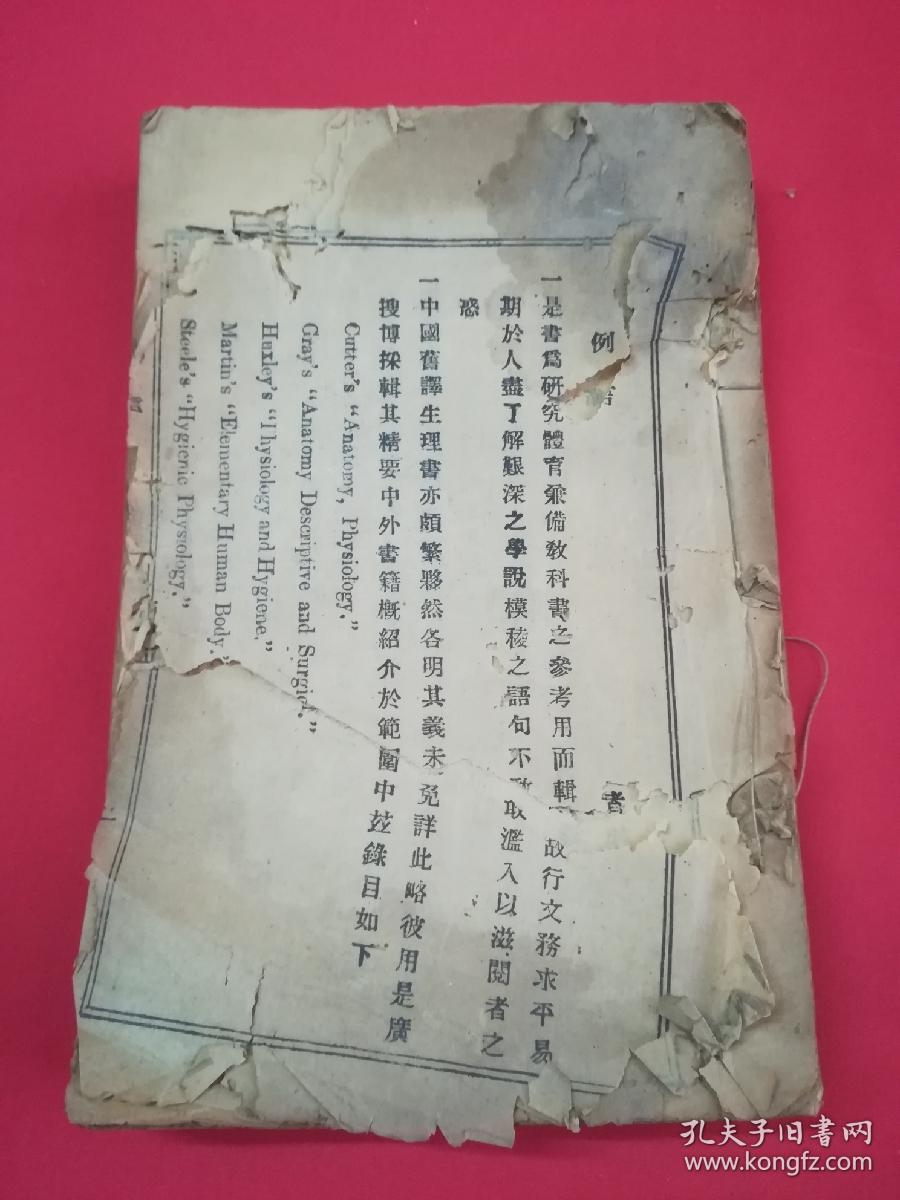 例言
者
一是書爲研究體育兼備敎科書之參考用而輯 故行文務求平易
期於人盡了解艱深之學說模稜之語句不敢取濫入以滋閱者之
惑
一中國舊譯生理書亦頗繁夥然各明其義未免詳此略彼用是廣
搜博採輯其精要中外書籍槪紹介於範圍中玆錄目如下
Cutter's “Anatomy, Physiology.”
Gray's “Anatomy Descriptive and Surgical.”
Huxley's “Thysiology and Hygiene.”
Martin's “Elementary Human Body.”
Steele's “Hygienic Physiology.”
孔夫子旧书网
www.kongfz.com